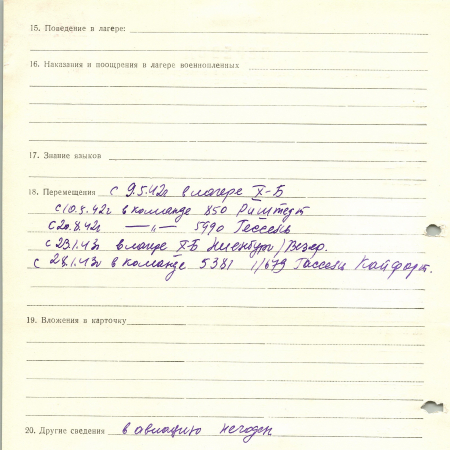 15. Поведение в лагере:
16. Наказания и поощрения в лагере военнопленных
17. Знание языков
18. Перемещения с 9.5.42г в лагере X-Б
с 10.5.42г в команде 850 Риштедт
с 20.8.42г —„— 5990 Гессель
с 23.1.43г в лагере X-Б Ниенбург/Везер.
с 28.1.43г в команде 5381 1/679 Гассель Кайфорт.
19. Вложения в карточку
20. Другие сведения в авиацию негоден